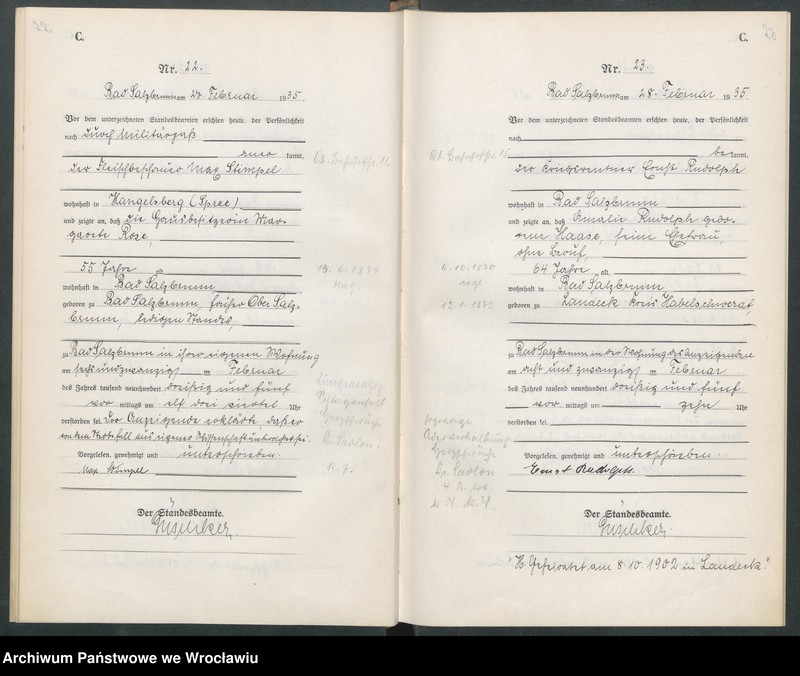 22
C.
Nr. 22.
Bad Salzbrunn am 27. Februar 1935.
Vor dem unterzeichneten Standesbeamten erschien heute, der Persönlichkeit
nach durch Militärpaß
kannt,
der Fleischbeschauer Max Stimpel
wohnhaft in Hangelsberg (Spree)
und zeigte an, daß die Hausbesitzerin Mar-
garete Rose,
55 Jahre alt
wohnhaft in Bad Salzbrunn,
geboren zu Bad Salzbrunn, früher Ober Salz-
brunn, ledigen Standes,
zu Bad Salzbrunn in ihrer eigenen Wohnung
am sechsundzwanzigsten Februar
des Jahres tausend neunhundert dreißig und fünf
vor mittags um elf drei viertel Uhr
verstorben sei. Der Anzeigende erklärte, daß er
von dem Sterbefall aus eigener Wissenschaft unterrichtet sei.
Vorgelesen, genehmigt und unterschrieben.
Max Stimpel
Der Standesbeamte.
13. 6. 1879
Dr. Sadlon.
23
C.
Nr. 23.
Bad Salzbrunn am 28. Februar 1935.
Vor dem unterzeichneten Standesbeamten erschien heute, der Persönlichkeit
nach
bekannt,
der Kriegsrentner Ernst Rudolph
wohnhaft in Bad Salzbrunn
und zeigte an, daß Amalie Rudolph gebo-
rene Haase, seine Ehefrau,
ohne Beruf,
64 Jahre alt
wohnhaft in Bad Salzbrunn
geboren zu Landeck Kreis Habelschwerdt,
zu Bad Salzbrunn in der Wohnung des Anzeigenden
am acht und zwanzigsten Februar
des Jahres tausend neunhundert dreißig und fünf
vor mittags um zehn Uhr
verstorben sei.
Vorgelesen, genehmigt und unterschrieben.
Ernst Rudolph.
Der Standesbeamte.
6. 10. 1870
Dr. Sadlon
"H. Geheiratet am 8. 10. 1902 in Landeck."
Archiwum Państwowe we Wrocławiu